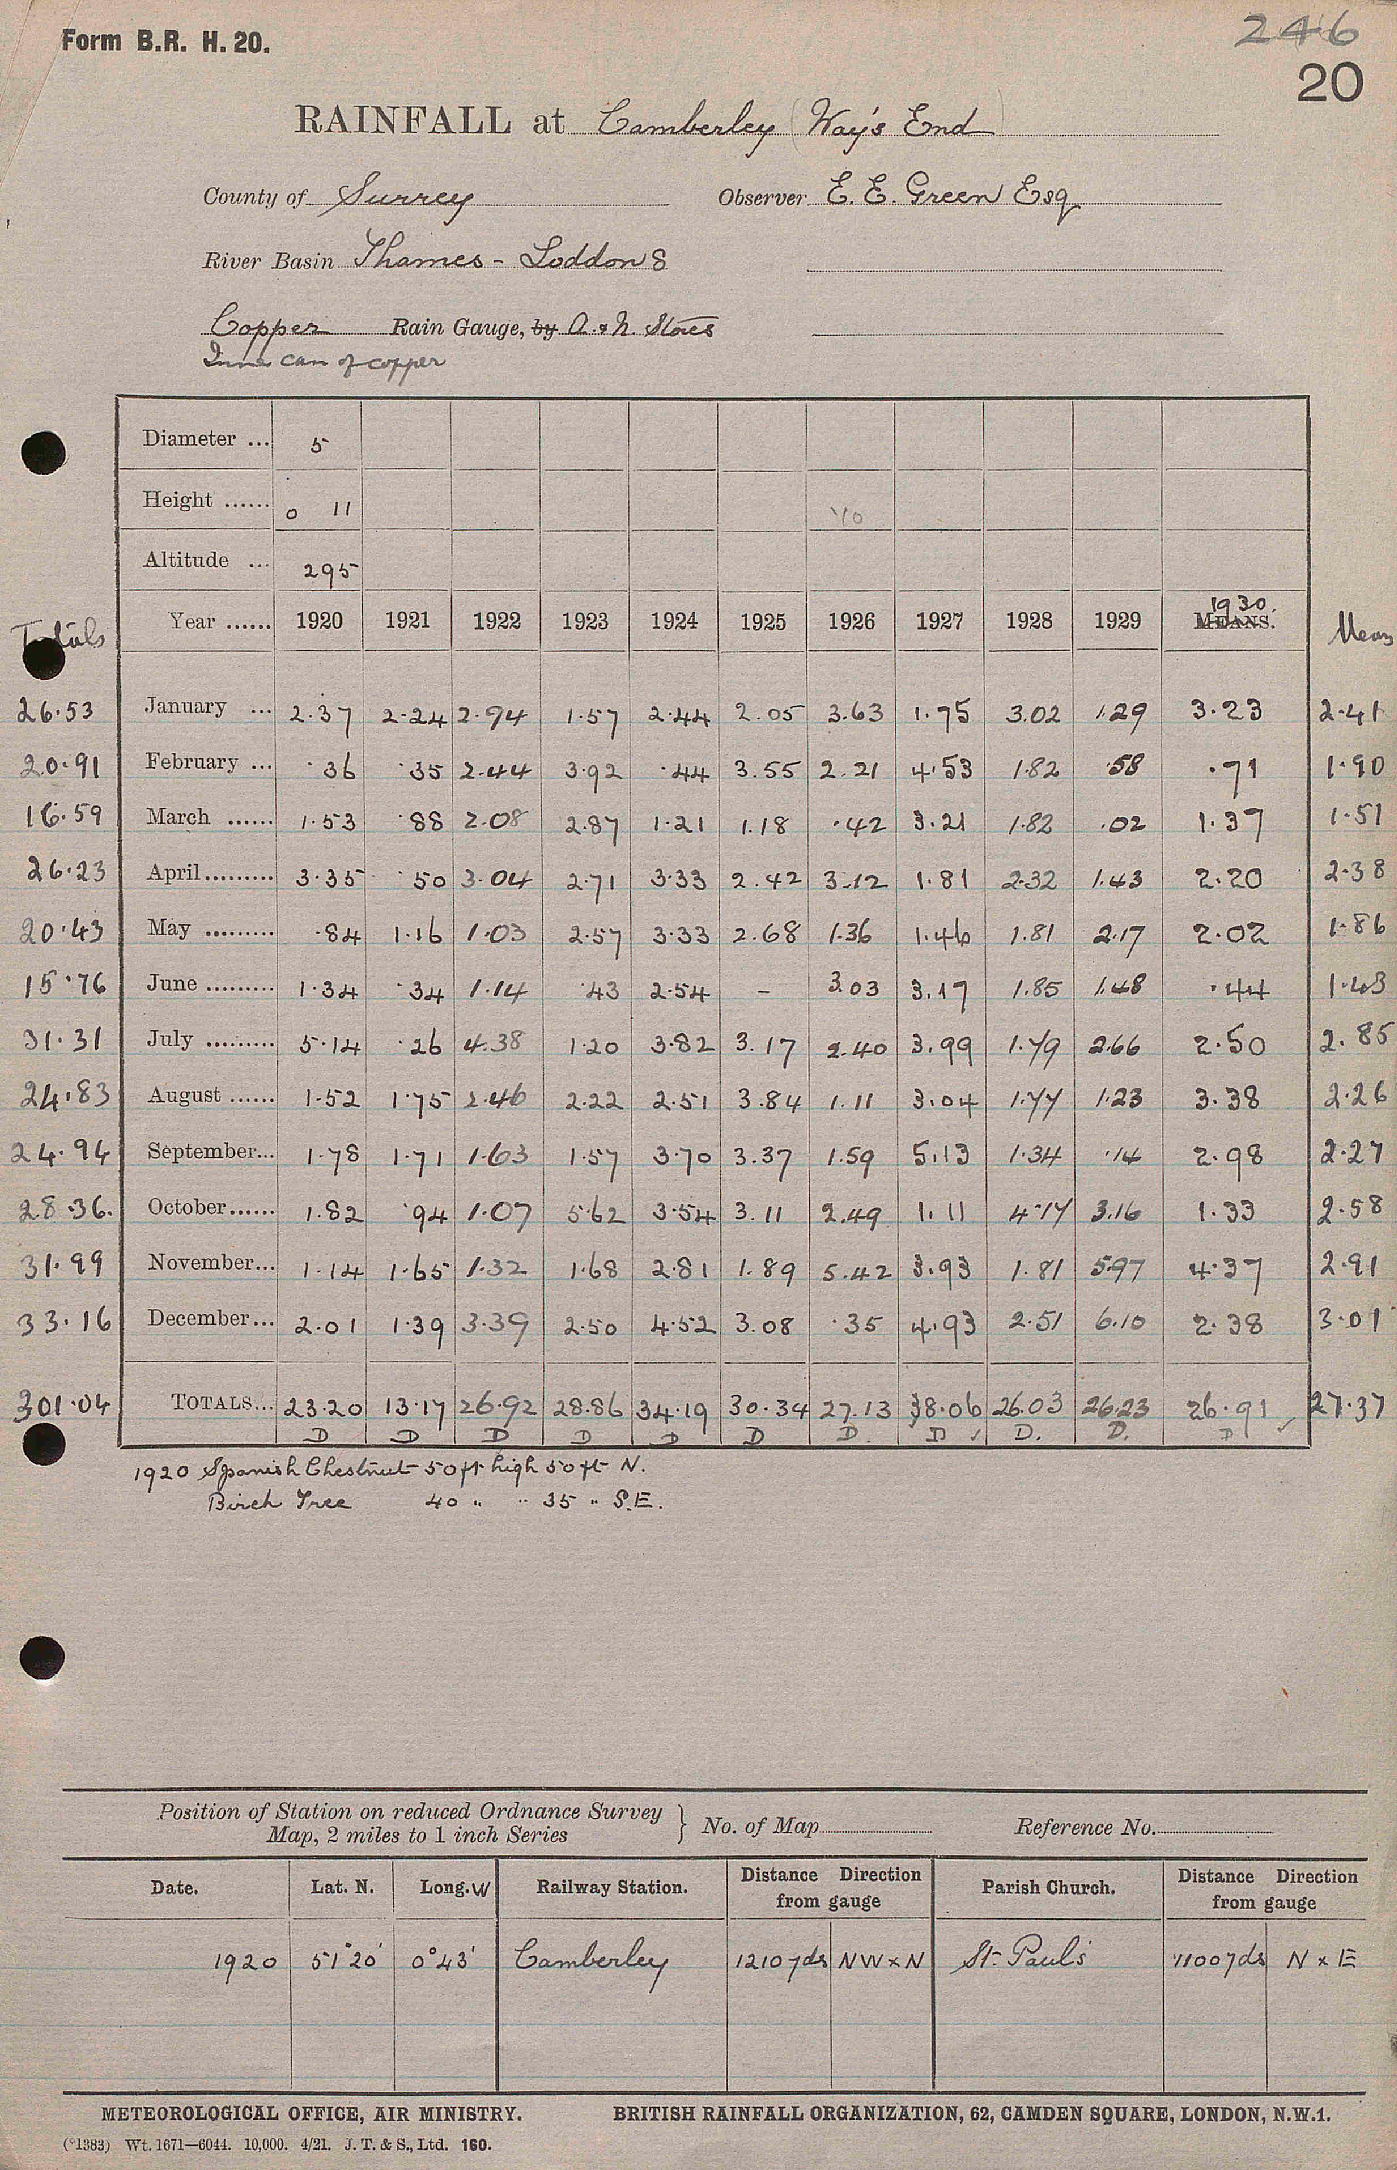 Form B.R. H. 20.
246
20
RAINFALL at Camberley (Way's End)
County of Surrey Observer E. E. Green Esq
River Basin Thames - Loddon 8
Copper Rain Gauge, by A. & N. Stores
Inner can of copper
Diameter ... 5
Height ...... 0 11 1/0
Altitude ... 295
Totals Year ...... 1920 1921 1922 1923 1924 1925 1926 1927 1928 1929 1930. MEANS. Mean
26.53 January ... 2.37 2.24 2.94 1.57 2.44 2.05 3.63 1.75 3.02 1.29 3.23 2.41
20.91 February ... .36 .35 2.44 3.92 .44 3.55 2.21 4.53 1.82 .58 .71 1.90
16.59 March ...... 1.53 .88 2.08 2.87 1.21 1.18 .42 3.21 1.82 .02 1.37 1.51
26.23 April ......... 3.35 .50 3.04 2.71 3.33 2.42 3.12 1.81 2.32 1.43 2.20 2.38
20.43 May ......... .84 1.16 1.03 2.57 3.33 2.68 1.36 1.46 1.81 2.17 2.02 1.86
15.76 June ......... 1.34 .34 1.14 .43 2.54 - 3.03 3.17 1.85 1.48 .44 1.43
31.31 July ......... 5.14 .26 4.38 1.20 3.82 3.17 2.40 3.99 1.79 2.66 2.50 2.85
24.83 August ...... 1.52 1.75 2.46 2.22 2.51 3.84 1.11 3.04 1.77 1.23 3.38 2.26
24.94 September... 1.78 1.71 1.63 1.57 3.70 3.37 1.59 5.13 1.34 .14 2.98 2.27
28.36. October...... 1.82 .94 1.07 5.62 3.54 3.11 2.49 1.11 4.17 3.16 1.33 2.58
31.99 November... 1.14 1.65 1.32 1.68 2.81 1.89 5.42 3.93 1.81 5.97 4.37 2.91
33.16 December... 2.01 1.39 3.39 2.50 4.52 3.08 .35 4.93 2.51 6.10 2.38 3.01
301.04 TOTALS... 23.20 13.17 26.92 28.86 34.19 30.34 27.13 38.06 26.03 26.23 26.91 27.37
D D D D D D D. D ✓ D. D. D ✓
1920 Spanish Chestnut 50 ft high 50 ft N.
Birch Tree 40 " " 35 " S.E.
Position of Station on reduced Ordnance Survey Map, 2 miles to 1 inch Series } No. of Map Reference No.
Date. Lat. N. Long. W Railway Station. Distance Direction from gauge Parish Church. Distance Direction from gauge
1920 51°20' 0°43' Camberley 1210 yds NW x N St. Paul's 1100 yds N x E
METEOROLOGICAL OFFICE, AIR MINISTRY. BRITISH RAINFALL ORGANIZATION, 62, CAMDEN SQUARE, LONDON, N.W.1.
(*1383) Wt. 1671—6044. 10,000. 4/21. J. T. & S., Ltd. 160.